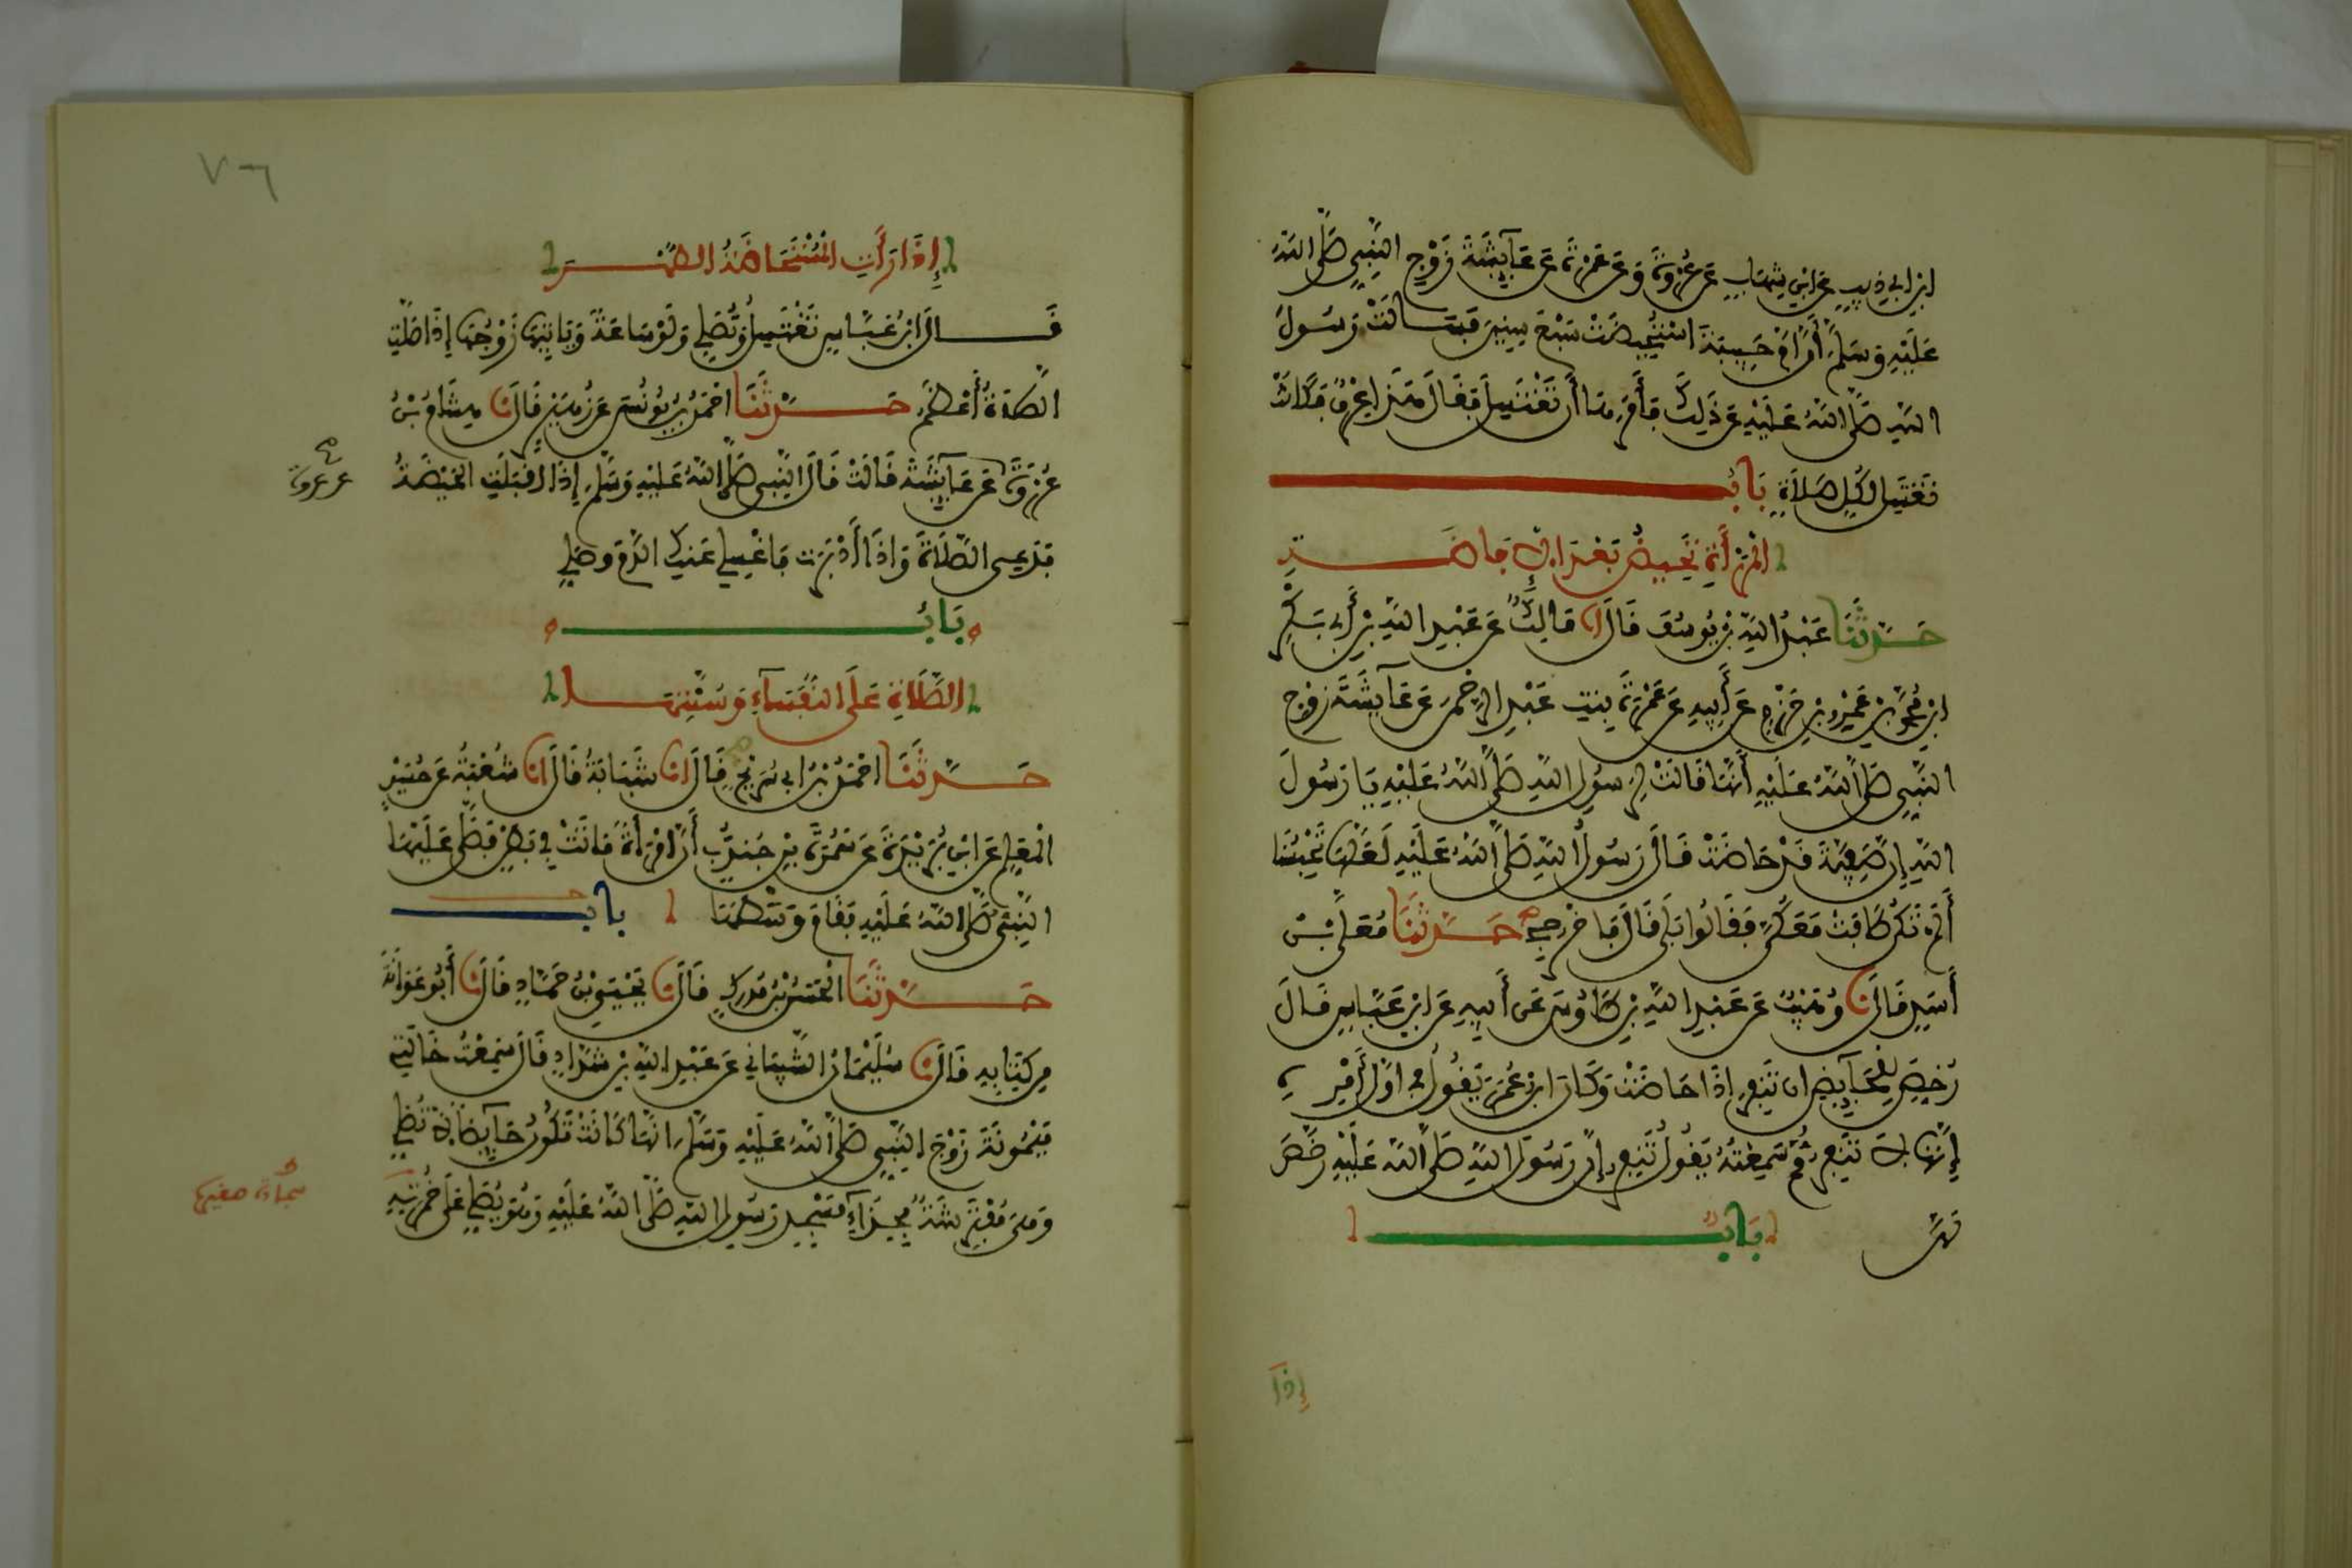 ابن أبي ذيب عن ابن شهاب عن عروة وعن عمرة عن عايشة زوج النبي صلى الله
عليه وسلم أن أم حبيبة استحيضت سبع سنين فسالت رسول
الله صلى الله عليه عن ذلك فأمرها أن تغتسل فقال هذا عرق فكانت
تغتسل لكل صلاة باب
المرأة تحيض بعد الافاضة
حدثنا عبد الله بن يوسف قال انا مالك عن عبد الله بن أبي بكر
ابن محمد بن عمرو بن حزم عن أبيه عن عمرة بنت عبد الرحمن عن عآيشة زوج
النبي صلى الله عليه أنها قالت لرسول الله صلى الله عليه يا رسول
الله إن صفية قد حاضت قال رسول الله صلى الله عليه لعلها تحبسنا
ألم تكن طافت معكن فقالوا بلى قال فاخرجي حدثنا معلى بن
أسد قال نا وهيب عن عبد الله بن طاوس عن أبيه عن ابن عباس قال
رخص للحآيض ان تنفر إذا حاضت وكان ابن عمر يقول في اول أمره
إنها لا تنفر ثم سمعته يقول تنفر إن رسول الله صلى الله عليه رخص
لهن باب
إذا
٧٦
إذا رأت المستحاضة الطهر
قال ابن عباس تغتسل وتصلي ولو ساعة وياتيها زوجها إذا صلت
الصلاة أعظم حدثنا احمد بن يونس عن زهير قال نا هشام بن
عروة عن عآيشة قالت قال النبي صلى الله عليه وسلم إذا اقبلت الحيضة
عن عروة
فدعي الصلاة وإذا أدبرت فاغسلي عنك الدم وصلي
باب
الصلاة على النفسآء وسنتها
حدثنا احمد بن ابي سريج قال انا شبابة قال انا شعبة عن حسين
المعلم عن ابن بريدة عن سمرة بن جندب أن امرأة ماتت في بطن فصلى عليها
النبي صلى الله عليه فقام وسطها باب
حدثنا الحسن بن مدرك قال نا يحيى بن حماد قال نا أبو عوانة
من كتابه قال نا سليمان الشيباني عن عبد الله بن شداد قال سمعت خالتي
ميمونة زوج النبي صلى الله عليه وسلم انها كانت تكون حآيضا لا تصلي
وهي مفترشة بحذآء مسجد رسول الله صلى الله عليه وهو يصلي على خمرته